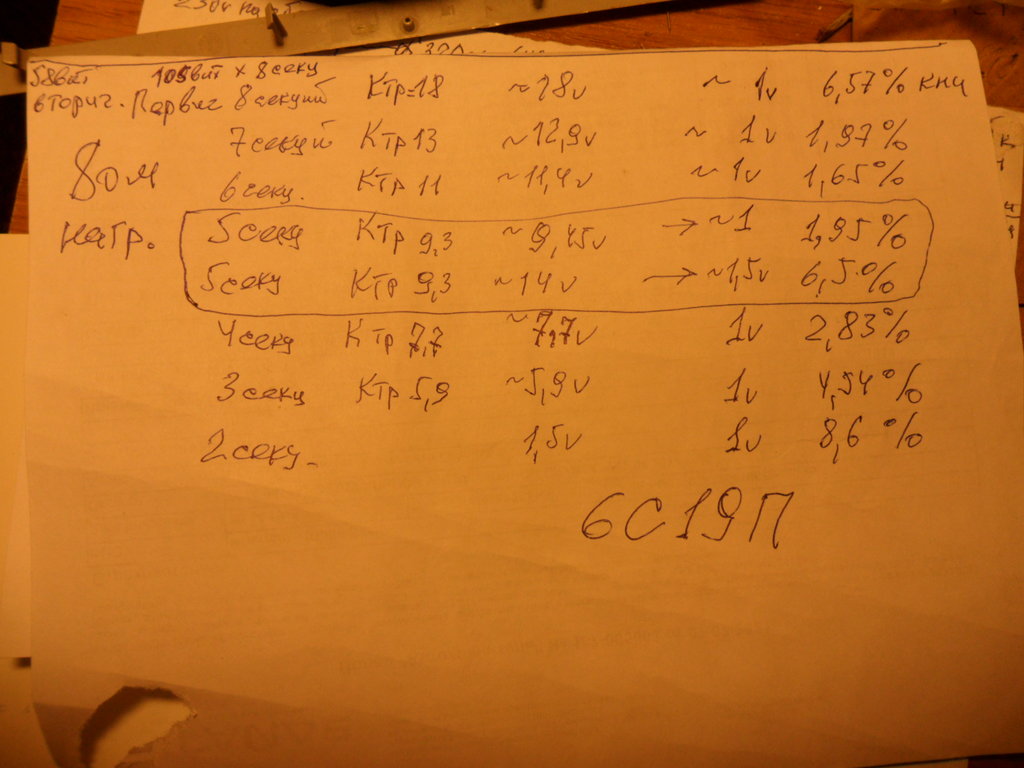 58вит 105вит x 8секц
вторич. Первич 8 секций Ктр=18 ~18v ~ 1v 6,57% кни
7секций Ктр 13 ~12,9v ~ 1v 1,97%
8ом 6 секц. Ктр 11 ~11,4v ~1v 1,65%
нагр. 5секц Ктр 9,3 ~9,45v → ~1 1,95%
5секц Ктр 9,3 ~14v → ~1,5v 6,5%
4секц Ктр 7,7 ~7,7v 1v 2,83%
3секц Ктр 5,9 ~5,9v 1v 4,54%
2секц. 1,5v 1v 8,6 %
6С19П